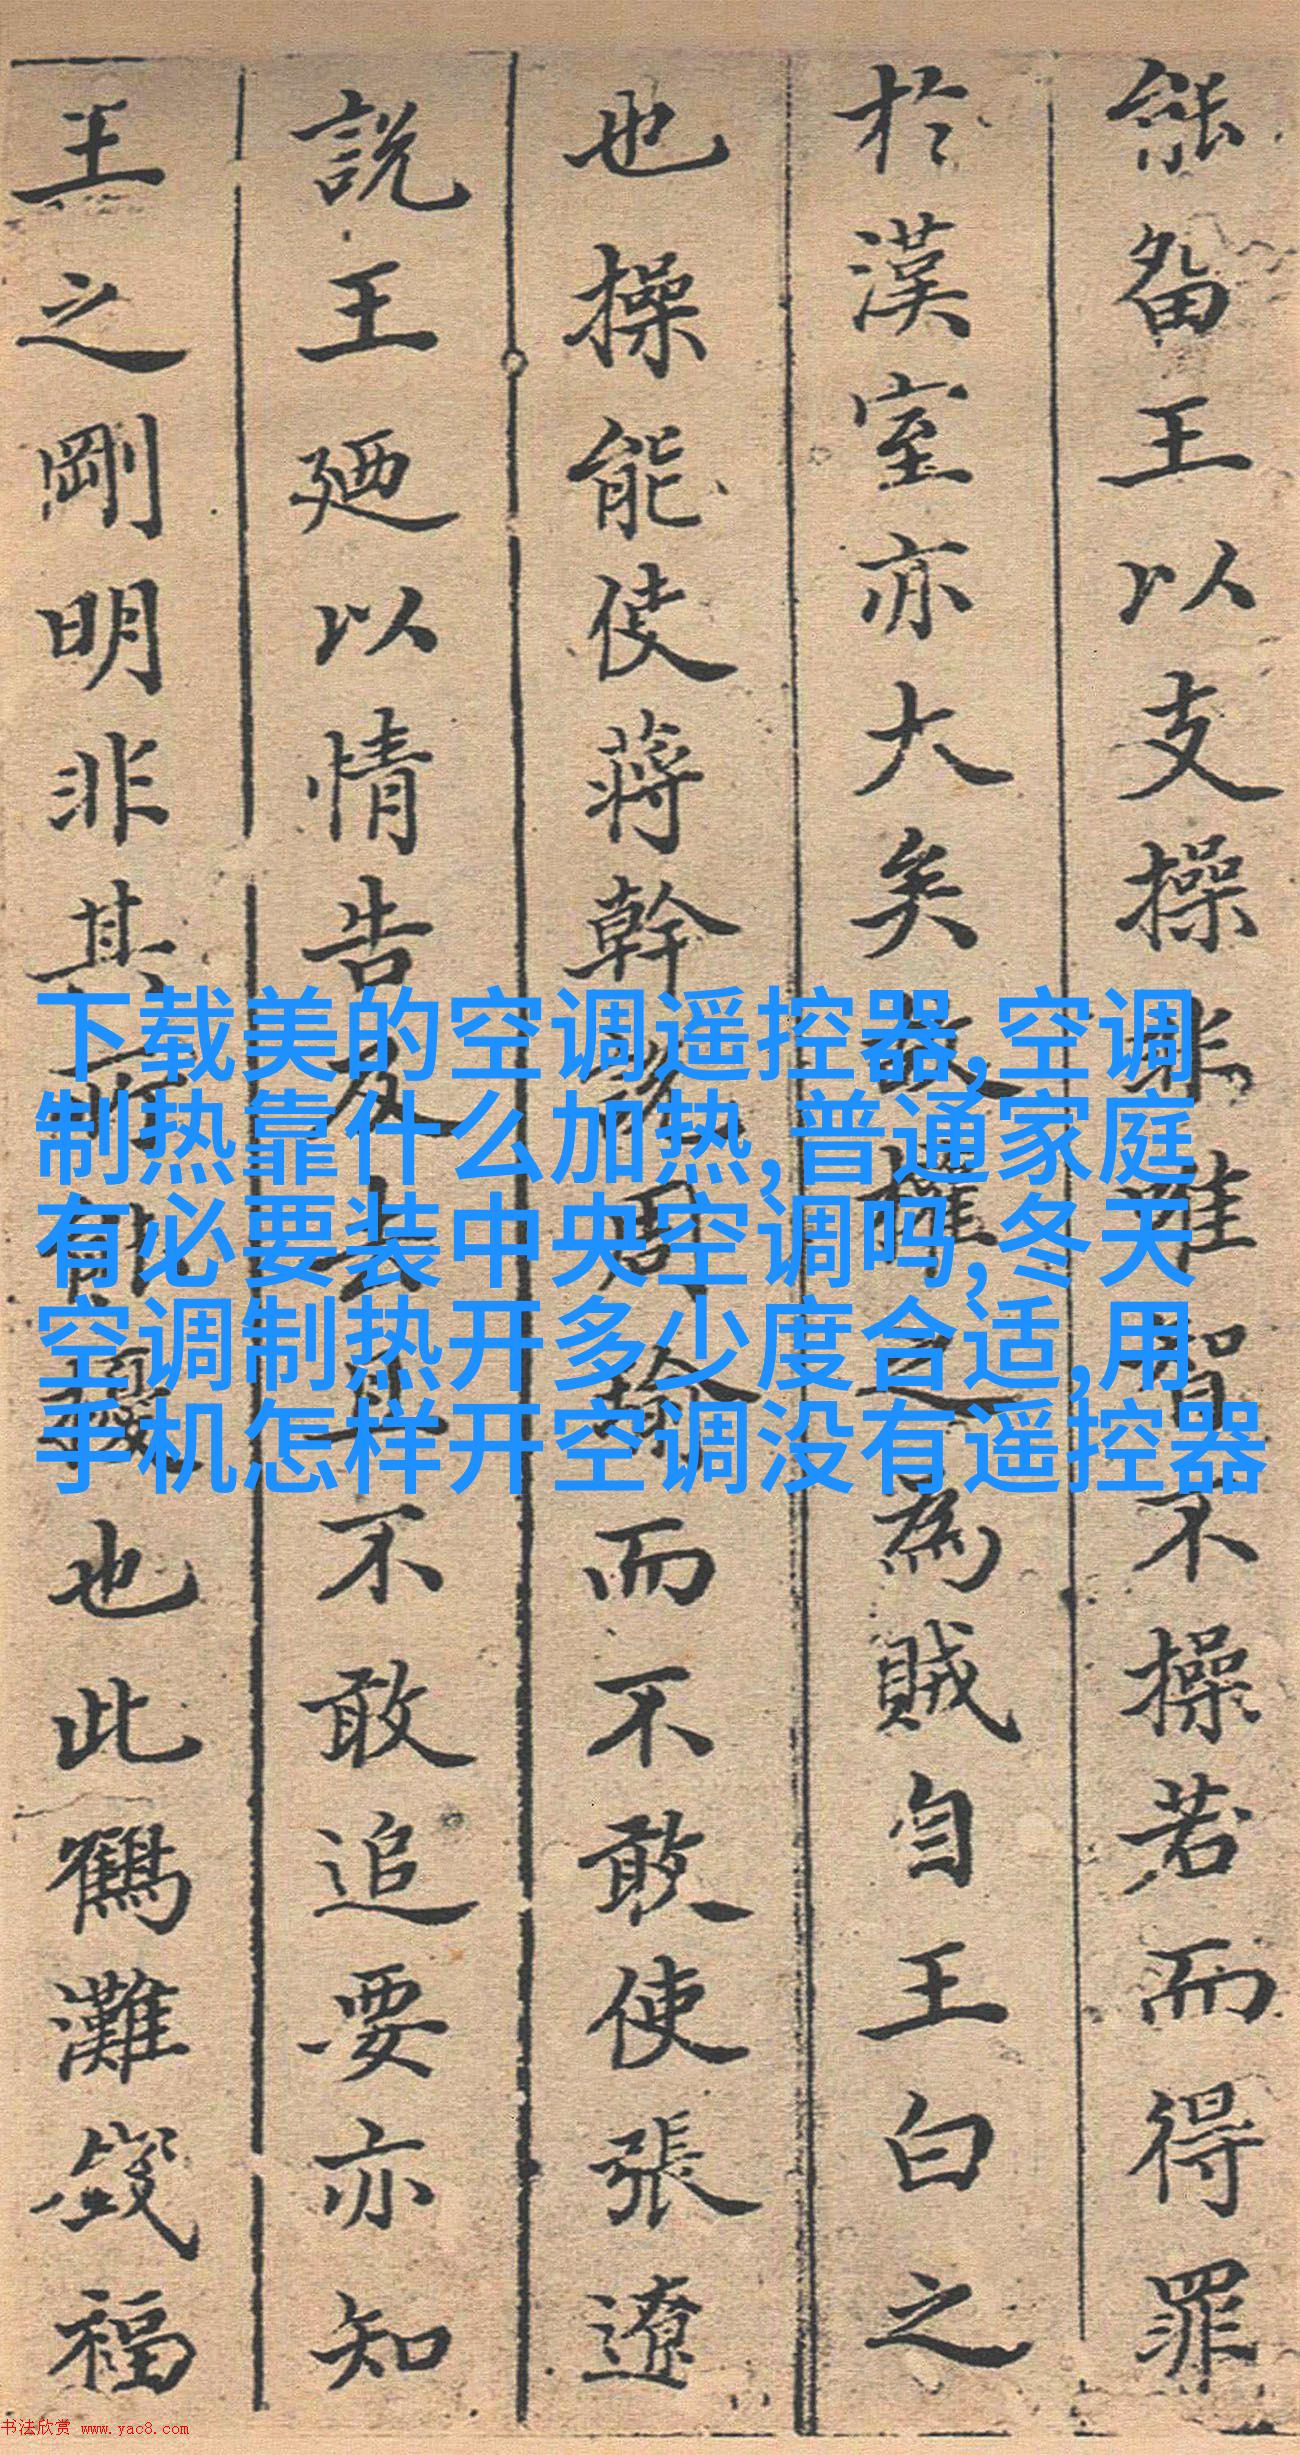 能留王以支操非惟不操若而得罪
於漢室亦大矣權之為賊自王白之
也操能使蔣幹說周瑜而不敢使張遼
說王廼以情告友去且不敢追要亦知
王之剛明非其所能也此鶴灘錢福
下载美的空调遥控器,空调
制热靠什么加热,普通家庭
有必要装中央空调吗,冬天
空调制热开多少度合适,用
手机怎样开空调没有遥控器
书法欣赏 www.yac8.com